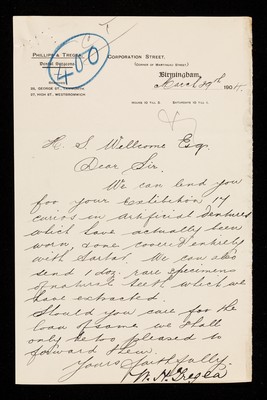 PHILLIPS & TREGEA
Dental Surgeons
400
CORPORATION STREET,
(CORNER OF MARTINEAU STREET)
Birmingham,
March 29th 1904.
35, GEORGE ST.,
27, HIGH ST. WESTBROMWICH.
HOURS 10 TILL 8. SATURDAYS 10 TILL
H. S. Wellcome Esq.
Dear Sir.
We can lend you
for your Exhibition, 17
curios in artificial dentures
which have actually been
worn, & one covered entirely
with tartar. We can also
send 1 doz. rare specimens
of natural teeth which we
have extracted.
Should you care for the
loan of same, we shall
only be too pleased to
forward them.
Yours faithfully,
W. H. Tregea